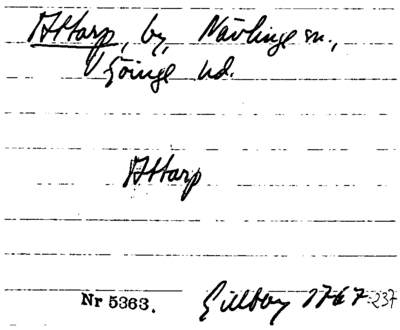 Attarp, by, Nävlinge sn.,
V Göinge hd.
Attarp
Nr 5363. Gillbog 1767:237